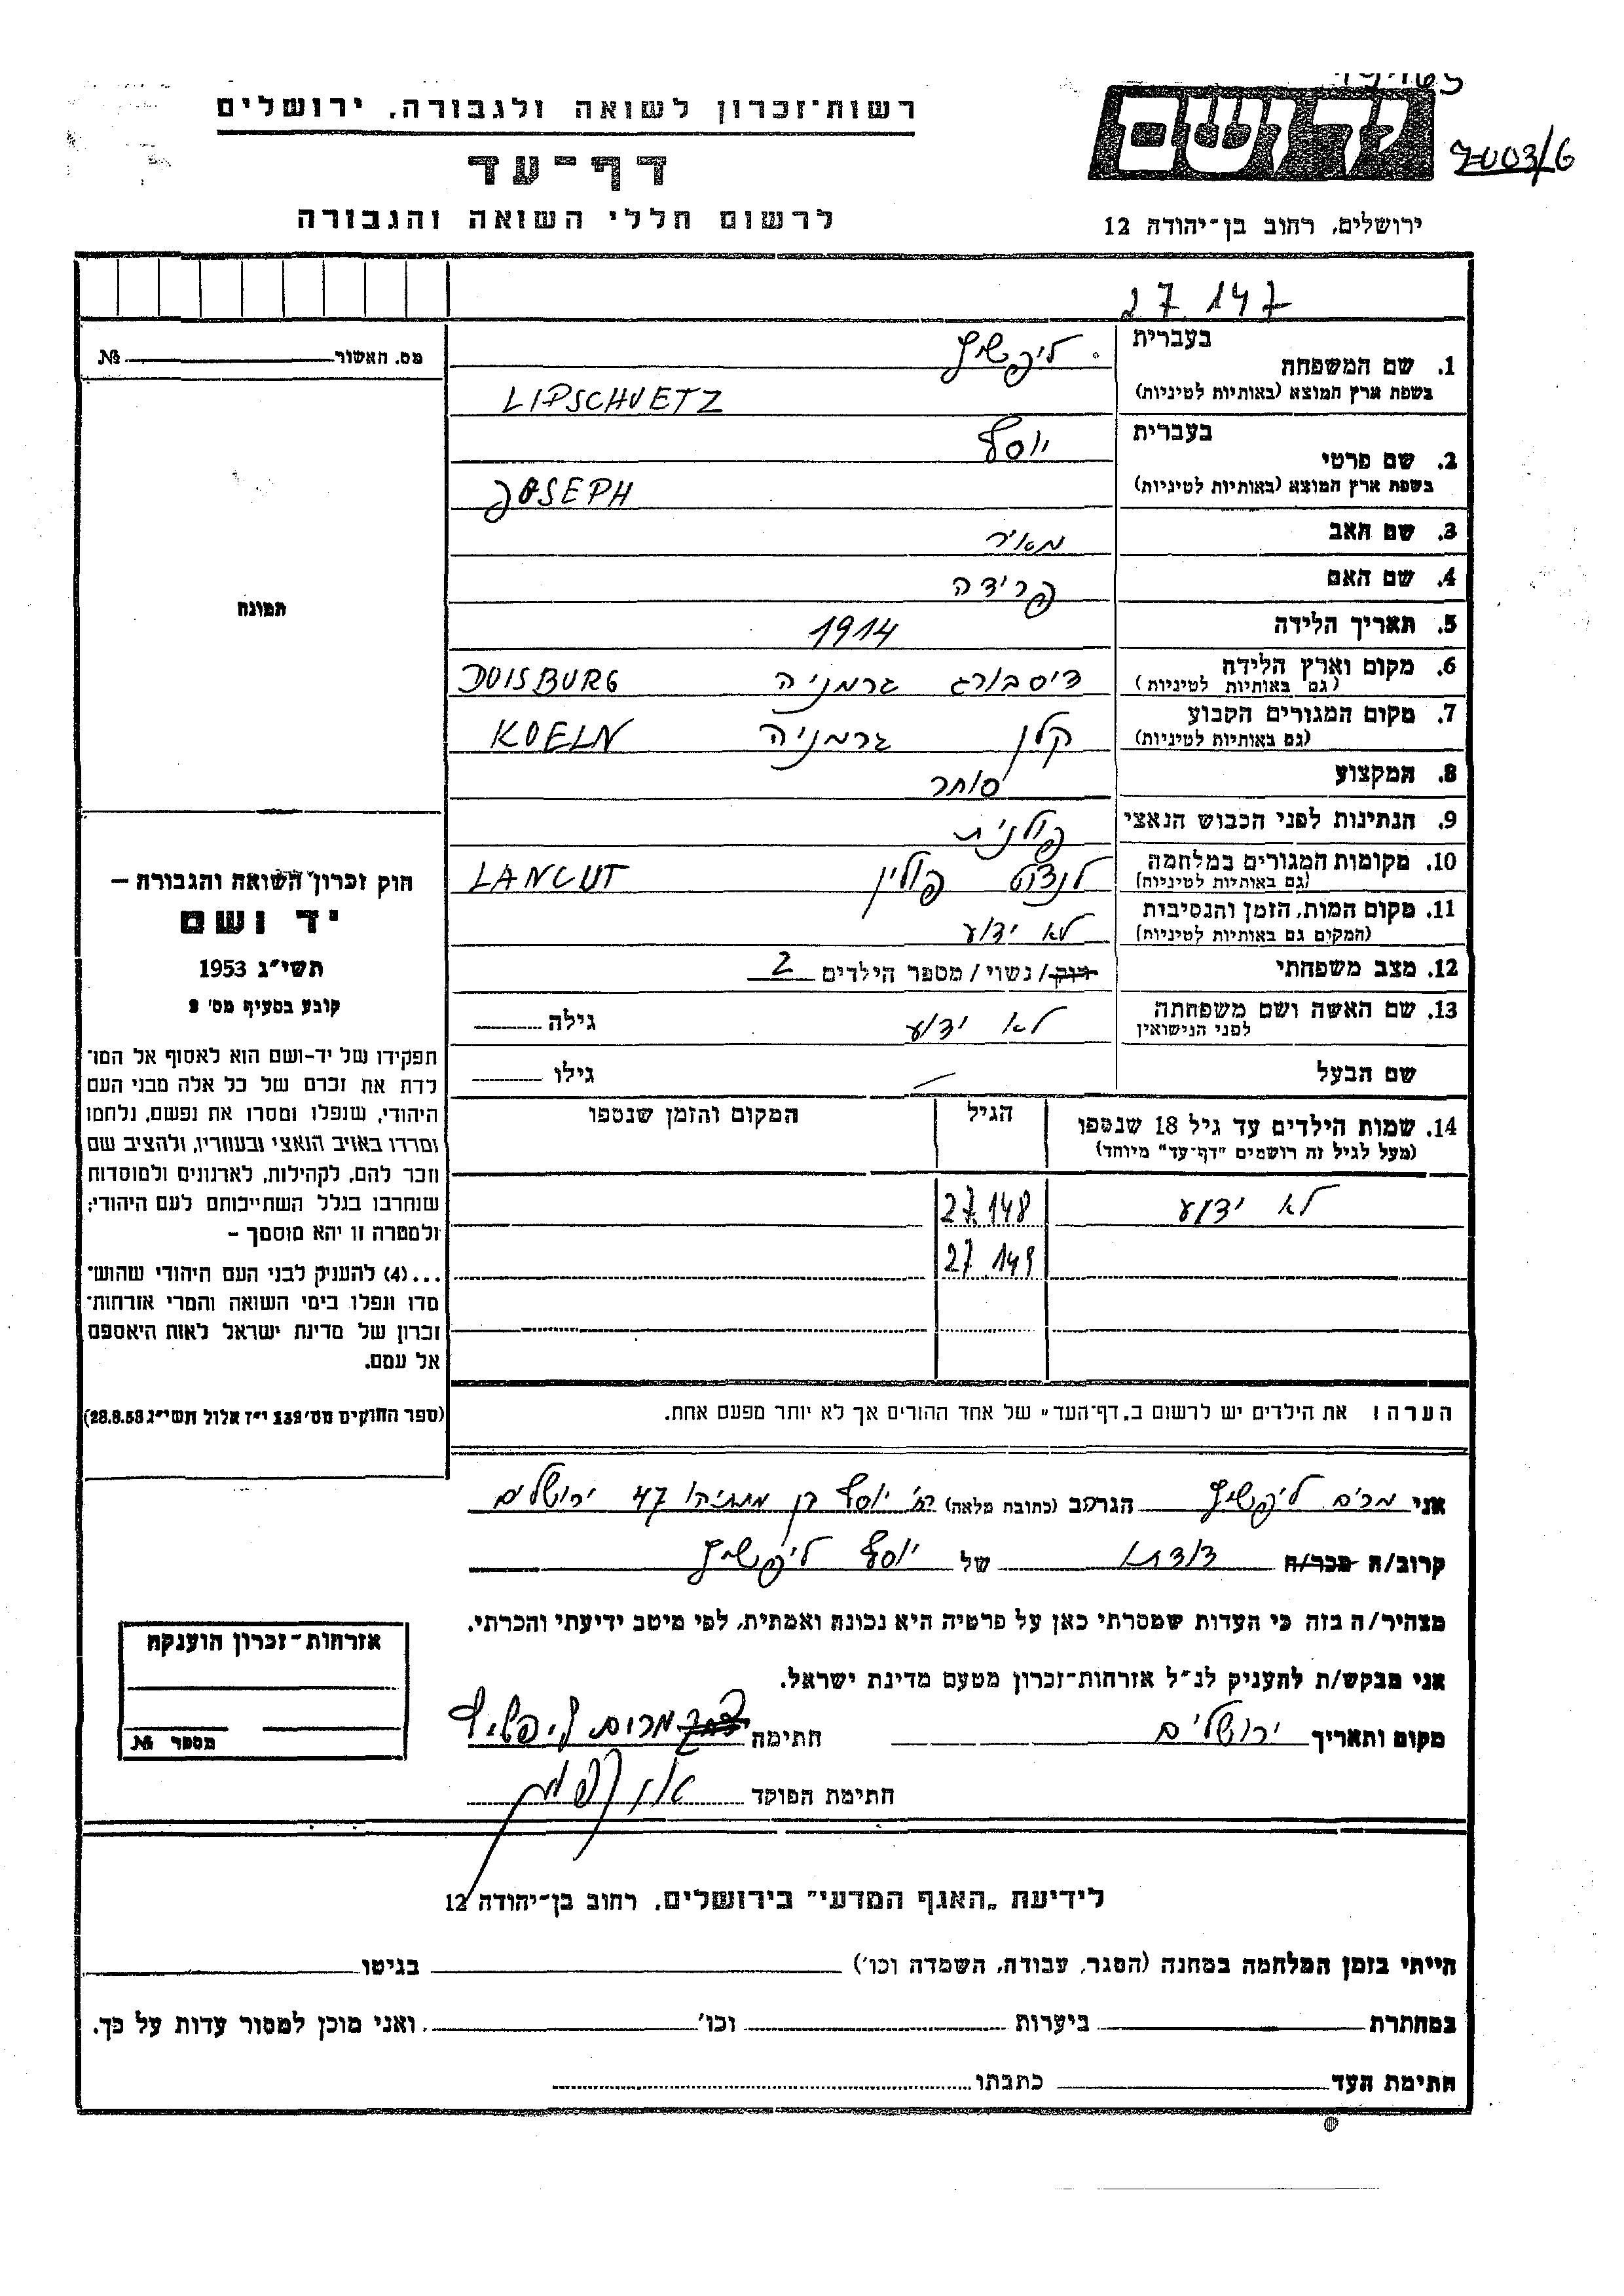 רשות־זכרון לשואה ולגבורה, ירושלים
דף־עד
לרשום חללי השואה והגבורה
יד ושם
7003/6
ירושלים, רחוב בן־יהודה 12
27.147
מס. האשור №
תמונה
1. שם המשפחה
בעברית ליפשיץ
בשפת ארץ המוצא (באותיות לטיניות) LIPSCHUETZ
2. שם פרטי
בעברית יוסף
בשפת ארץ המוצא (באותיות לטיניות) JOSEPH
3. שם האב מאיר
4. שם האם פרידה
5. תאריך הלידה 1914
6. מקום וארץ הלידה דיסבורג גרמניה DUISBURG
(גם באותיות לטיניות)
7. מקום המגורים הקבוע קלן גרמניה KOELN
(גם באותיות לטיניות)
8. המקצוע סוחר
9. הנתינות לפני הכבוש הנאצי פולנית
10. מקומות המגורים במלחמה לנצוט פולין LANCUT
(גם באותיות לטיניות)
11. מקום המות, הזמן והנסיבות לא ידוע
(המקום גם באותיות לטיניות)
12. מצב משפחתי רוק/ נשוי/ מספר הילדים 2
13. שם האשה ושם משפחתה לא ידוע גילה
לפני הנישואין
שם הבעל גילו
14. שמות הילדים עד גיל 18 שנספו הגיל המקום והזמן שנספו
(מעל לגיל זה רושמים "דף־עד" מיוחד)
לא ידוע 27.148
27.149
הערה: את הילדים יש לרשום ב„דף־העד" של אחד ההורים אך לא יותר מפעם אחת.
חוק זכרון השואה והגבורה —
יד ושם
תשי"ג 1953
קובע בסעיף מס' 2
תפקידו של יד-ושם הוא לאסוף אל המו־
לדת את זכרם של כל אלה מבני העם
היהודי, שנפלו ומסרו את נפשם, נלחמו
ומרדו באויב הנאצי ובעוזריו, ולהציב שם
וזכר להם, לקהילות, לארגונים ולמוסדות
שנחרבו בגלל השתייכותם לעם היהודי;
ולמטרה זו יהא מוסמך –
...(4) להעניק לבני העם היהודי שהוש־
מדו ונפלו בימי השואה והמרי אזרחות־
זכרון של מדינת ישראל לאות היאספם
אל עמם.
(ספר החוקים מס' 132 י"ז אלול תשי"ג 28.8.53)
אני מרים ליפשיץ הגר/ה ב (כתובת מלאה) רח' יוסף בן מתתיהו 47 ירושלים
קרוב/ה מכר/ה דודתו של יוסף ליפשיץ
מצהיר/ה בזה כי העדות שמסרתי כאן על פרטיה היא נכונה ואמתית, לפי מיטב ידיעתי והכרתי.
אני מבקש/ת להעניק לנ"ל אזרחות־זכרון מטעם מדינת ישראל.
מקום ותאריך ירושלים חתימה מרים ליפשיץ
חתימת הפוקד
אזרחות־זכרון הוענקה
מספר №
לידיעת „האגף המדעי" בירושלים, רחוב בן־יהודה 12
הייתי בזמן המלחמה במחנה (הסגר, עבודה, השמדה וכו') בגיטו
במחתרת ביערות וכו' ואני מוכן למסור עדות על כך.
חתימת העד כתבתו